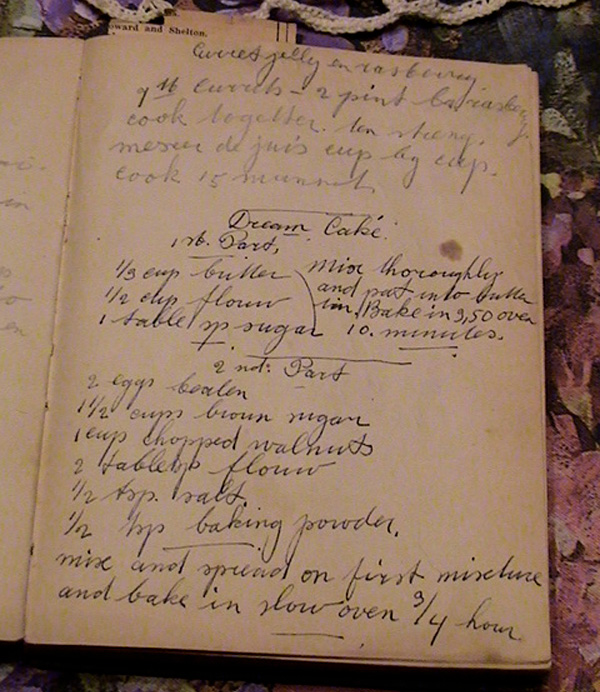 oward and Shelton.
Curres jelly en rasberry
9 lb currets - 2 pint
cook together. ten streng.
mesur de juis cup by cup.
cook 15 munnet
Dream Cake.
1 st. Part,
1/3 cup butter
1/2 cup flouw
1 table sp sugar
Mix thoroughly
and put into butter
tin. Bake in 3,50 oven
10. minutes.
2 nd. Part
2 eggs beaten
1 1/2 cups broun sugar
1 cup chopped walnuts
2 tablesp flouw
1/2 tsp. salt.
1/2 tsp baking powder.
mixe and spread on first mixture
and bake in slow oven 3/4 hour